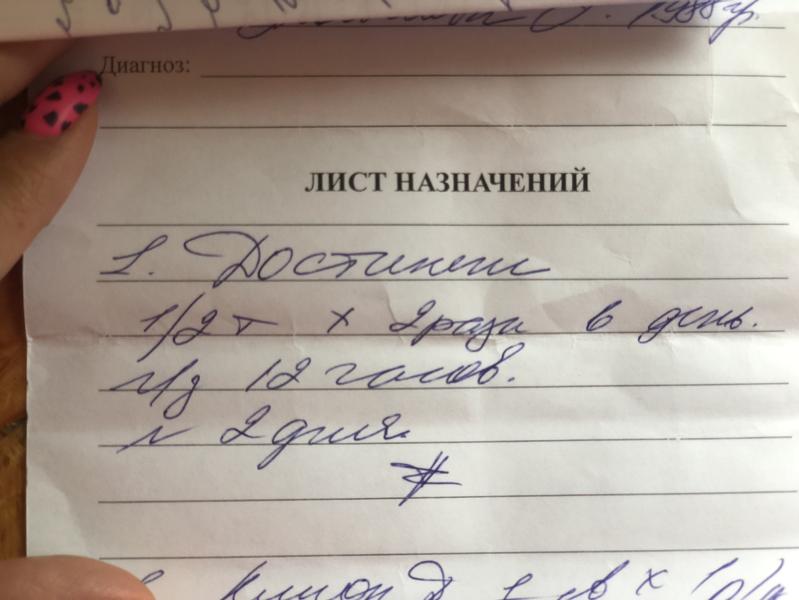 1988г.
Диагноз:
ЛИСТ НАЗНАЧЕНИЙ
1. Достинекс
1/2 т х 2 раза в день.
ч/з 12 часов.
2 дня.
#
Клион Д 1 св х 1 р/д